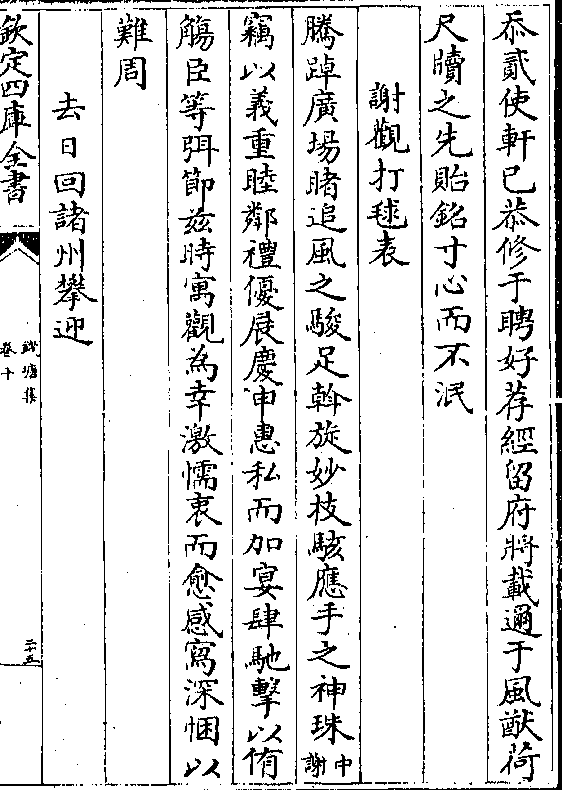 忝貳使軒已恭修于聘好荐經留府將載邇于風猷荷
尺牘之先貽銘寸心而不泯
謝觀打毬表
騰踔廣場睹追風之駿足斡旋妙枝駭應手之神珠中謝
竊以義重睦鄰禮優展慶申惠私而加宴肆馳擊以侑
觴臣等弭節兹時寓觀為幸激懦衷而愈感寫深悃以
難周
去日回諸州攀迎
欽定四庫全書
錢塘集
卷十
二十五